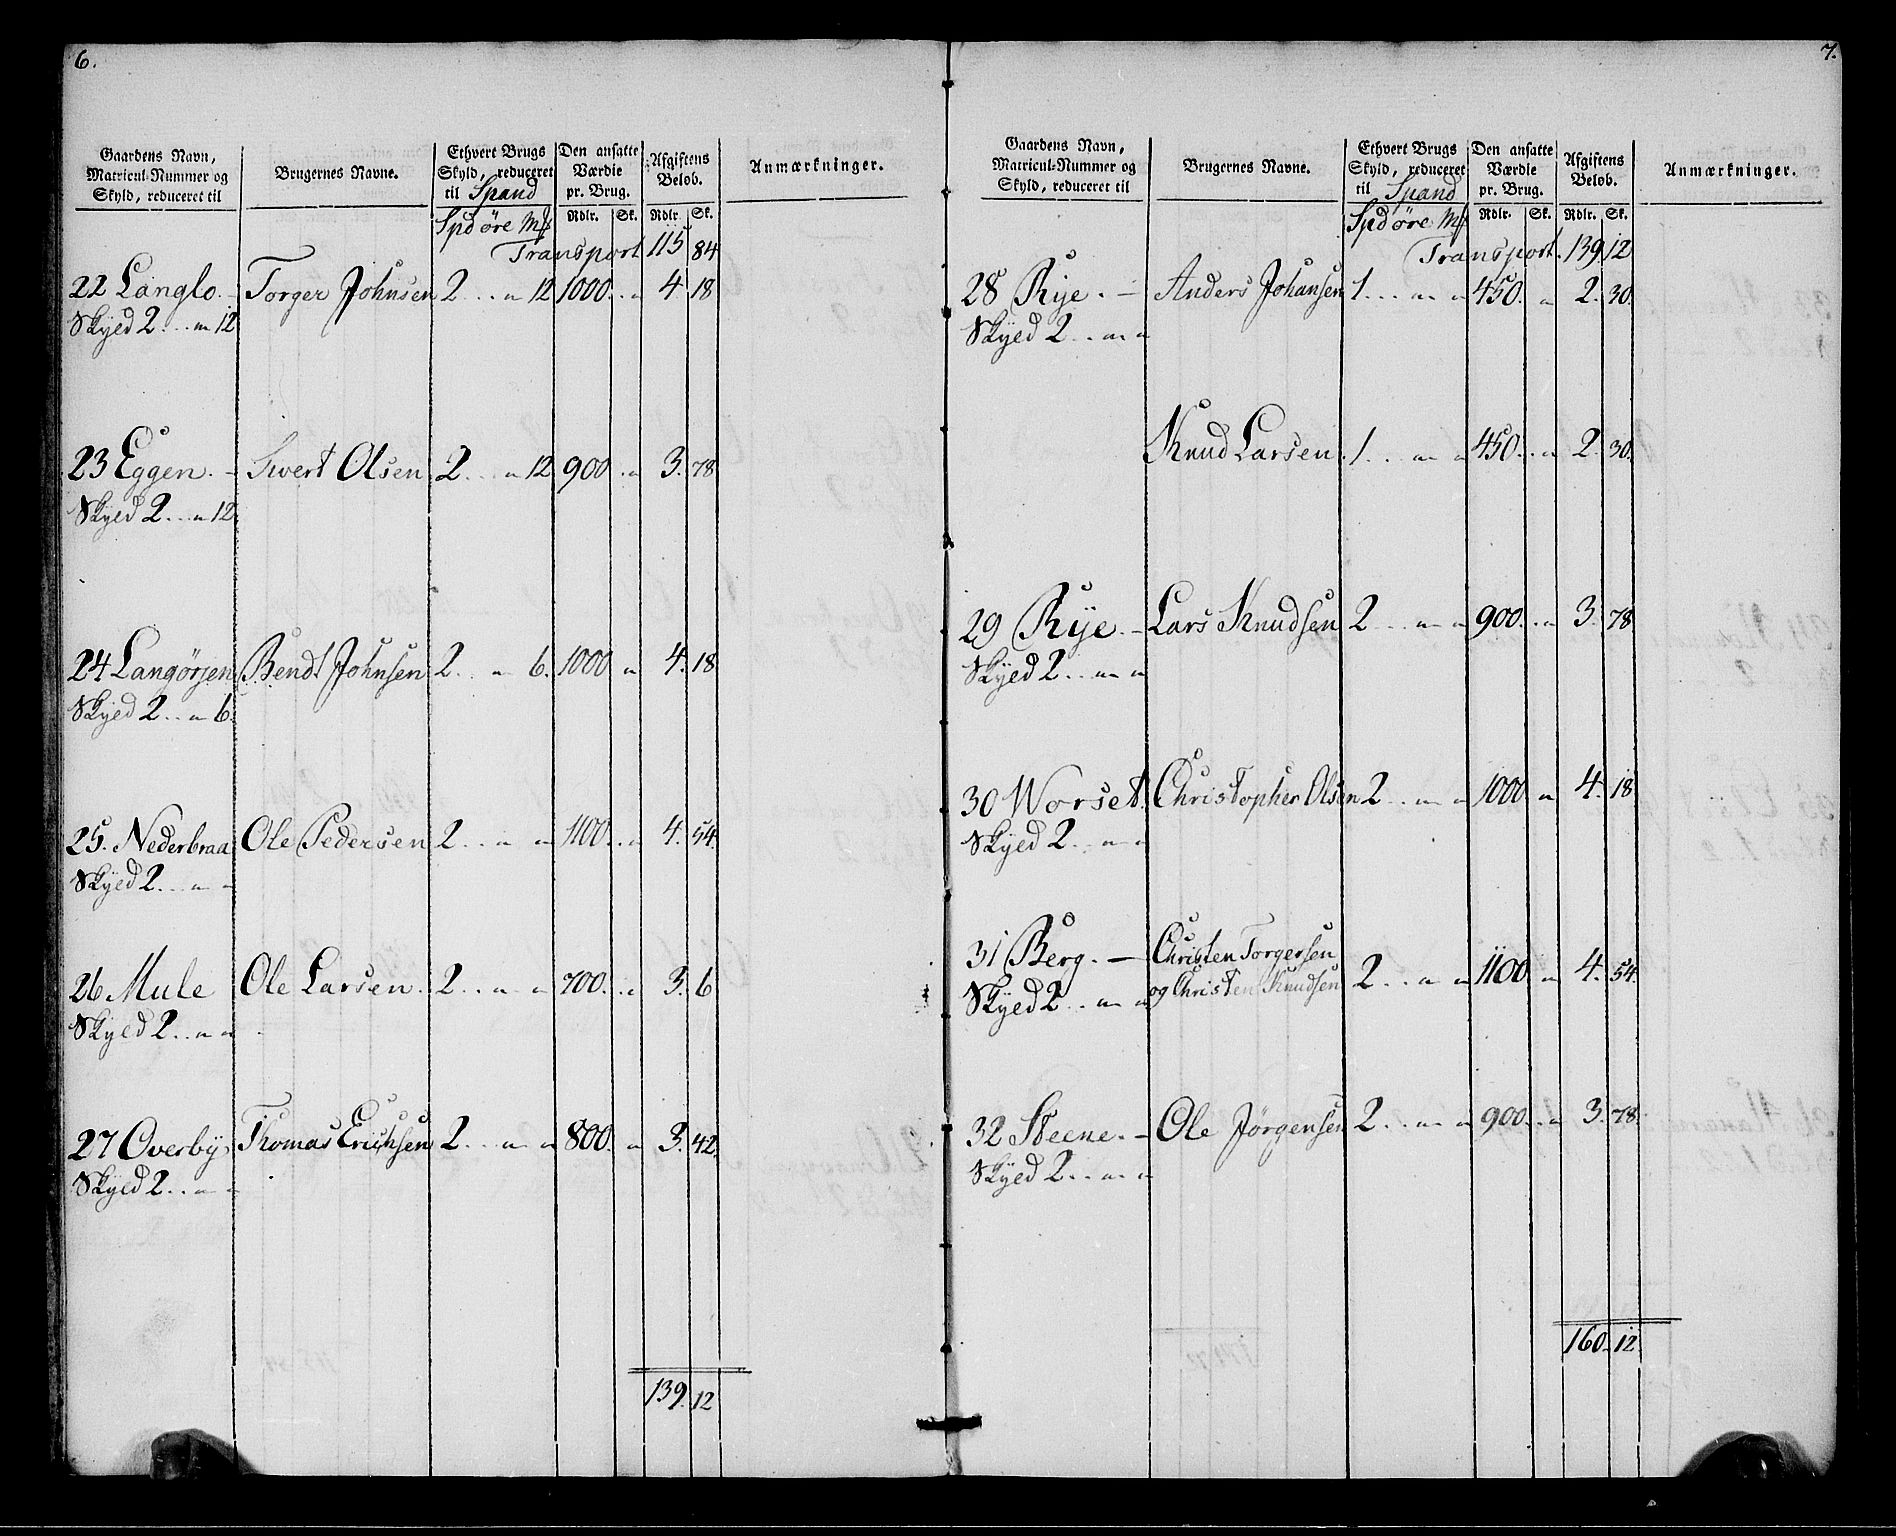 6.
Gaardens Navn, Matricul-Nummer og Skyld, reduceret til
Brugernes Navne.
Ethvert Brugs Skyld, reduceret til Spand
Den ansatte Værdie pr. Brug.
Afgiftens Beløb.
Anmærkninger.
Spd øre Mk
Rdlr. Sk. Rdlr. Sk.
Transport 115 84
22 Langlo. – Torger Johnsen 2 . . . „ 12 1000 . . „ 4 18
Skyld 2 . . . „ 12
23 Eggen. – Sivert Olsen 2 . . . „ 12 900 . . „ 3. 78
Skyld 2 . . . „ 12
24 Langørjen Bendt Johnsen 2 . . „ 6. 1000 „ 4. 18
Skyld 2 . . „ 6.
25. Nederbraa Ole Pedersen 2 . . „ „ 1100. . „ 4. 54.
Skyld 2 . . . „ „
26 Mule Ole Larsen. 2 . . „ „ 700. . „ 3. 6
Skyld 2 . . „ „
27 Overby Thomas Erichsen 2 . . „ „ 800. „ 3. 42.
Skyld 2 . . „ „
139. 12
7.
Gaardens Navn, Matricul-Nummer og Skyld, reduceret til
Brugernes Navne.
Ethvert Brugs Skyld, reduceret til Spand
Den ansatte Værdie pr. Brug.
Afgiftens Beløb.
Anmærkninger.
Spd øre Mk
Rdlr. Sk. Rdlr. Sk.
Transport. 139. 12
28 Rye. – Anders Johansen 1 . . . „ „ 450. „ 2. 30.
Skyld 2 . . „ „
Knud Larsen 1 . . . „ „ 450. . „ 2. 30.
29 Rye. – Lars Knudsen 2 . . . „ „ 900. . „ 3. 78
Skyld 2 . . „ „
30 Worset. Christopher Olsen 2 . . „ „ 1000 „ 4. 18
Skyld 2 . . „ „
31 Berg. – Christen Torgersen
og Christen Knudsen 2 . . „ „ 1100 „ 4. 54.
Skyld 2 . . „ „
32 Steene. – Ole Jørgensen 2 . . „ „ 900. . „ 3. 78.
Skyld 2 . . „ „
160. 12